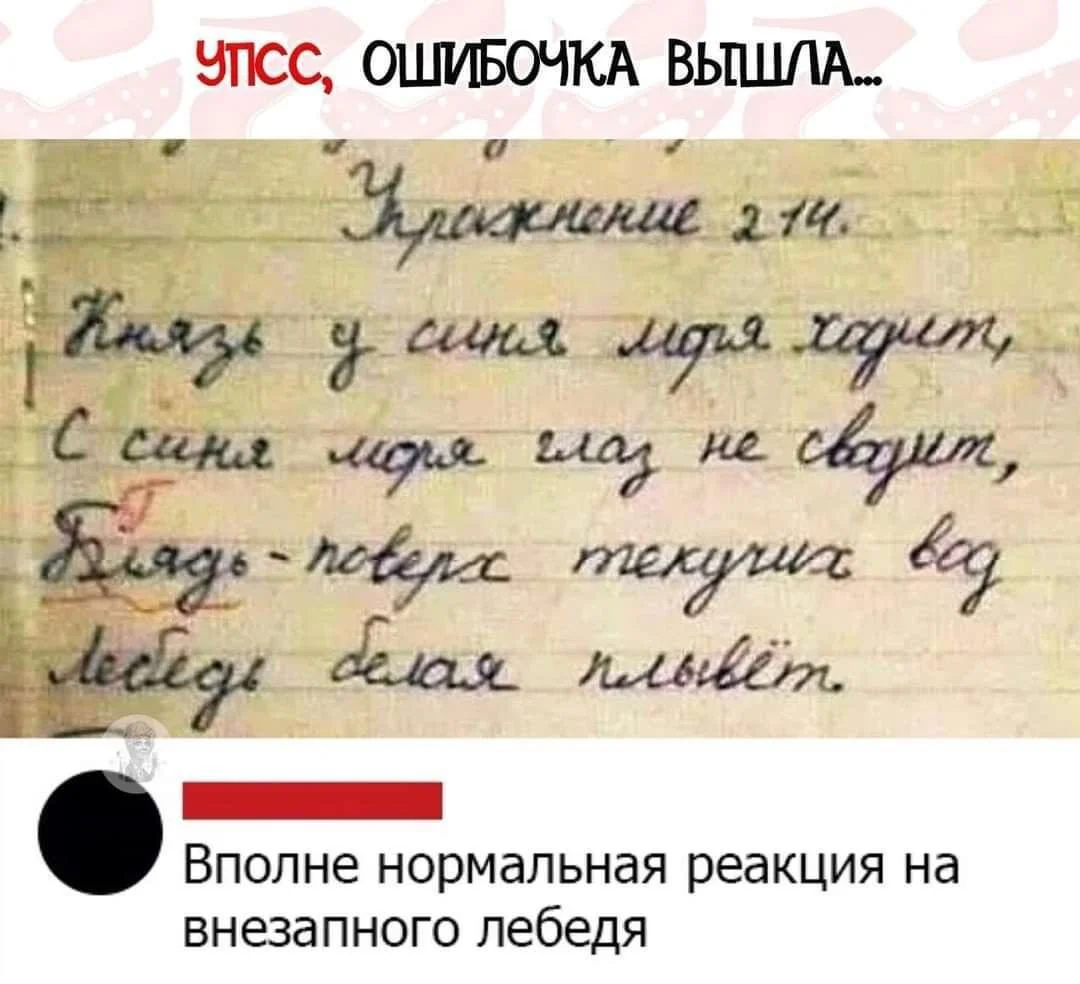 УПСС, ОШИБОЧКА ВЫШЛА...
Упражнение 214.
Князь у синя моря ходит,
С синя моря глаз не сводит,
Г
Блядь - поверх текучих вод
Лебедь белая плывёт.
Вполне нормальная реакция на
внезапного лебедя